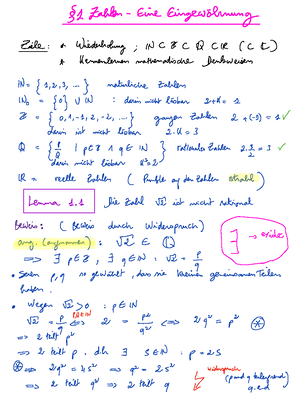 §1 Zahlen - Eine Eingewöhnung
Ziele: * Wiederholung ; ℕ ⊂ ℤ ⊂ ℚ ⊂ ℝ (⊂ ℂ)
* Kennenlernen mathematische Denkweisen
ℕ = {1, 2, 3, ...} natürliche Zahlen
ℕ₀ = {0} ∪ ℕ : darin nicht lösbar 2 + x = 1
ℤ = {0, 1, -1, 2, -2, ...} ganzen Zahlen 2 + (-1) = 1 ✓
darin ist nicht lösbar 2·x = 3
ℚ = {p/q | p ∈ ℤ ∧ q ∈ ℕ} rationalen Zahlen 2·3/2 = 3 ✓
darin nicht lösbar x² = 2
ℝ = reelle Zahlen (Punkte auf dem Zahlenstrahl)
Lemma 1.1 Die Zahl √2 ist nicht rational
Beweis: (Beweis durch Widerspruch)
ang. (angenommen) : √2 ∈ ℚ
∃ → existiert
⟹ ∃ p ∈ ℤ, ∃ q ∈ ℕ : √2 = p/q
• Seien p, q so gewählt, dass sie keinen gemeinsamen Teiler
haben.
• Wegen √2 > 0 : p ∈ ℕ
√2 = p/q ⟺ 2 = p²/q² ⟺ 2q² = p² ⊛
⟹ 2 teilt p²
⟹ 2 teilt p, d.h. ∃ s ∈ ℕ : p = 2s
⊛ ⟹ 2q² = 4s² ⟹ q² = 2s²
⟹ 2 teilt q² ⟹ 2 teilt q
Widerspruch
(p und q teilerfremd)
q.e.d